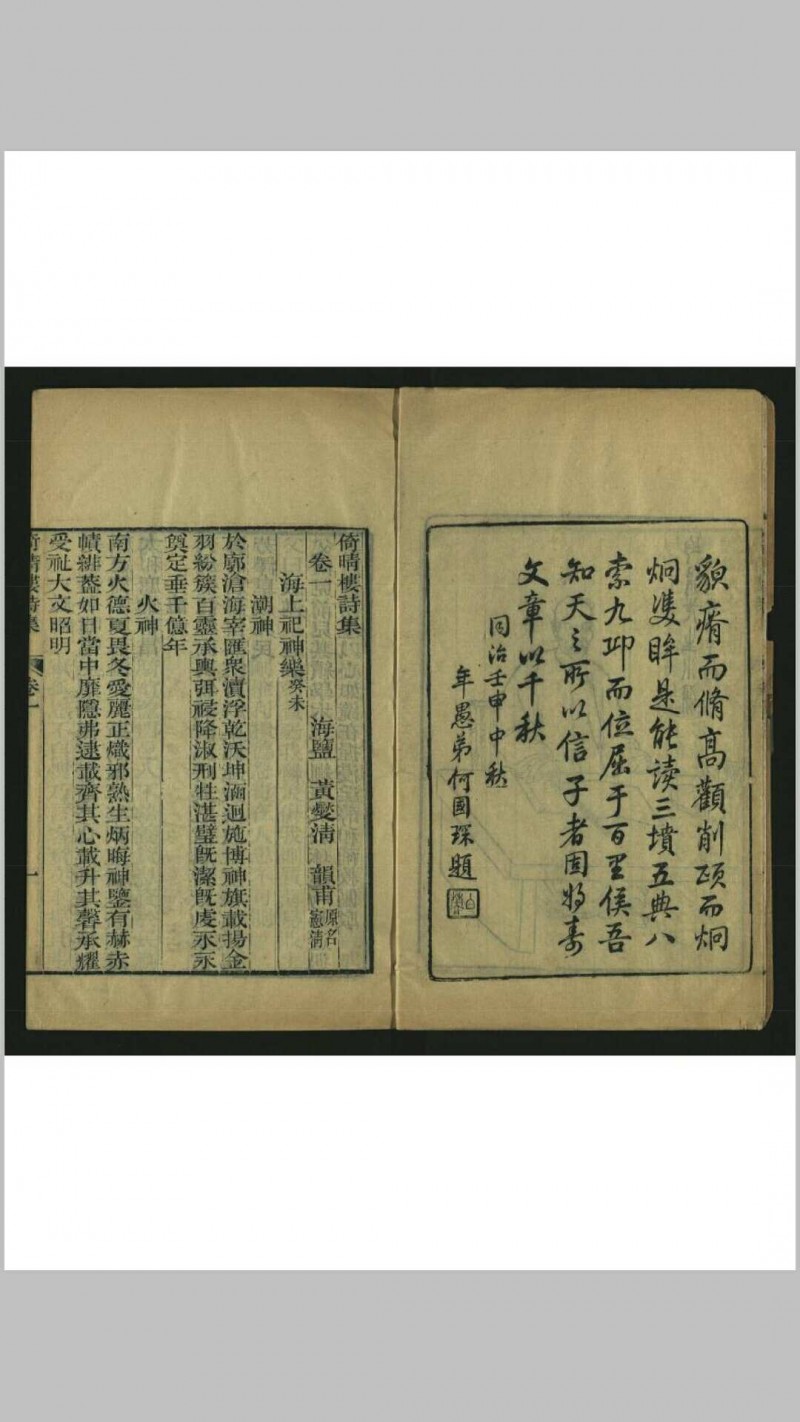 貌瘠而脩高顴削頤而炯
炯雙眸是能讀三墳五典八
索九邱而位屈于百里侯吾
知天之所以信子者固將壽
文章以千秋
同治壬申中秋
年愚弟何國琛題
倚晴樓詩集
卷一
海鹽 黃燮淸 韻甫 原名憲淸
海上祀神樂癸未
潮神
於廓滄海宰匯衆瀆浮乾沃坤濔迴施博神旗載揚金
羽紛簇百靈承輿弭祲降淑刑牲湛璧旣潔旣虔永永
奠定垂千億年
火神
南方火德夏畏冬愛麗正熾邪熟生炳晦神鑒有赫赤
幘緋葢如日當中靡隱弗逮載齊其心載升其馨承耀
受祉大文昭明
倚晴樓詩集
卷一
一